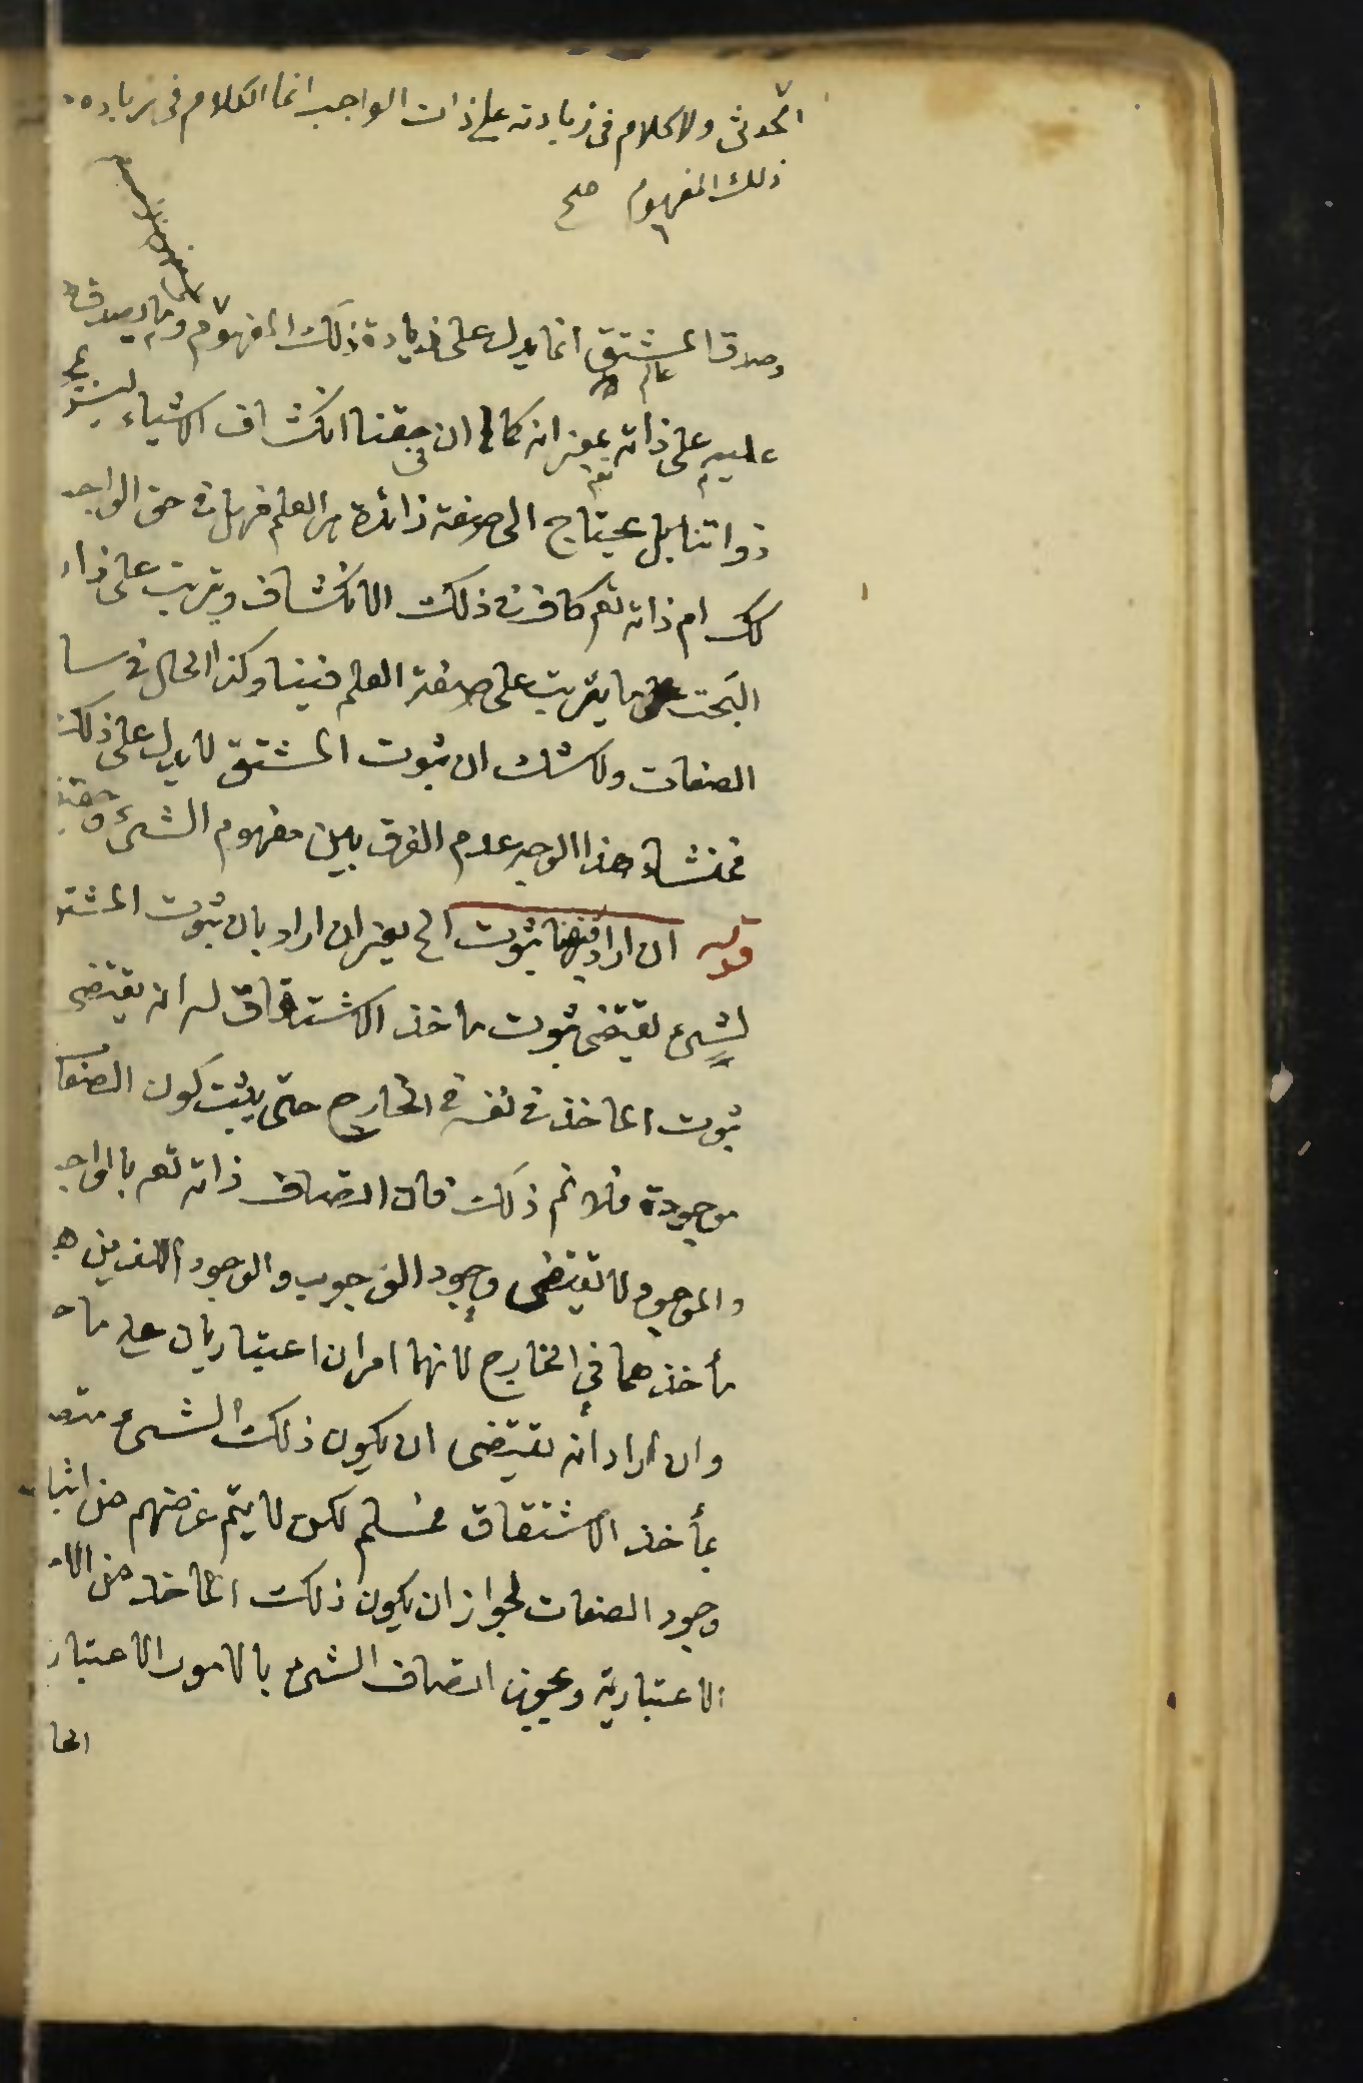 المحدثى ولا كلام فى زيادته على ذات الواجب انما الكلام فى زيادة
ذلك المفهوم صح
وصدق المشتق انما يدل على زيادة ذلك المفهوم وما يصدق
عالم
عليه على ذاته بمعنى انه كما ان فى حقنا انكشاف الاشياء
ذواتنا بل يحتاج الى صفة زائدة هى العلم فهل فى حق الواجب
كك ام ذاته تعم كاف فى ذلك الانكشاف ويترتب على ذا
البحت ما يترتب على صفة العلم فينا وكذا الحال فى سا
الصفات ولا شك ان ثبوت المشتق لا يدل على ذلك
فمنشاء هذا الوجه عدم الفرق بين مفهوم الشئ
قوله ان اراد ثبوت الخ يعنى ان اراد بان ثبوت المشتق
لشئ يقتضى ثبوت مأخذ الاشتقاق له انه يقتضى
ثبوت المأخذ فى نفسه فى الخارج حتى يثبت كون الصفا
موجودة فلا نم ذلك فان اتصاف ذاته تعم بالواجب
والموجود لا يقتضى وجود الوجوب والوجود اللذين
مأخذهما فى الخارج لانهما امران اعتباريان على ما
وان اراد انه يقتضى ان يكون ذلك الشئ متصف
بمأخذ الاشتقاق فمسلم لكن لا يتم غرضهم من اثبا
وجود الصفات لجواز ان يكون ذلك المأخذ من الا
الاعتبارية ويجوز اتصاف الشئ بالامور الاعتبار
الخا